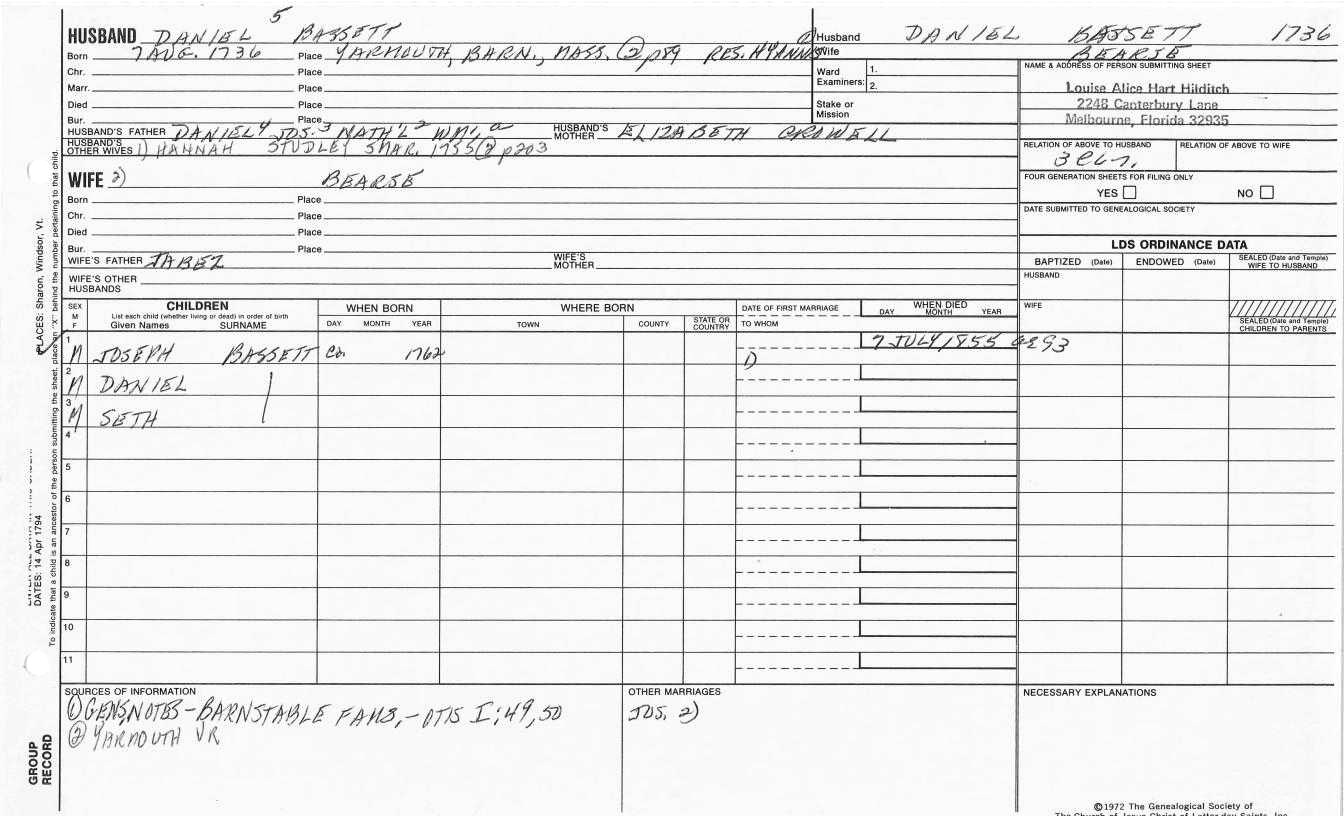 5
HUSBAND DANIEL BASSETT
Born 7 AUG. 1736 Place YARMOUTH, BARN., MASS. ② p89 RES. HYANNIS
Chr. Place
Marr. Place
Died Place
Bur. Place
HUSBAND'S FATHER DANIEL⁴ JOS.³ NATH'L² WM.¹ HUSBAND'S MOTHER ELIZABETH CROWELL
HUSBAND'S OTHER WIVES 1) HANNAH STUDLEY 5 MAR. 1755 ② p203
WIFE 2) BEARSE
Born Place
Chr. Place
Died Place
Bur. Place
WIFE'S FATHER JABEZ WIFE'S MOTHER
WIFE'S OTHER HUSBANDS
Husband DANIEL BASSETT 1736
Wife BEARSE
Ward Examiners: 1. 2.
Stake or Mission
NAME & ADDRESS OF PERSON SUBMITTING SHEET
Louise Alice Hart Hilditch
2248 Canterbury Lane
Melbourne, Florida 32935
RELATION OF ABOVE TO HUSBAND RELATION OF ABOVE TO WIFE
FOUR GENERATION SHEETS FOR FILING ONLY
YES NO
DATE SUBMITTED TO GENEALOGICAL SOCIETY
LDS ORDINANCE DATA
BAPTIZED (Date) ENDOWED (Date) SEALED (Date and Temple) WIFE TO HUSBAND
HUSBAND
WIFE
SEALED (Date and Temple) CHILDREN TO PARENTS
SEX M F
CHILDREN
List each child (whether living or dead) in order of birth
Given Names SURNAME
WHEN BORN
DAY MONTH YEAR
WHERE BORN
TOWN COUNTY STATE OR COUNTRY
DATE OF FIRST MARRIAGE
TO WHOM
WHEN DIED
DAY MONTH YEAR
1 M JOSEPH BASSETT Ca. 1762 1) 7 JULY 1855 ae 93
2 M DANIEL
3 M SETH
4
5
6
7
8
9
10
11
SOURCES OF INFORMATION
① GENS. NOTES - BARNSTABLE FAMS. - OTIS I; 49, 50
② YARMOUTH VR
OTHER MARRIAGES
JOS. 2)
NECESSARY EXPLANATIONS
©1972 The Genealogical Society of
The Church of Jesus Christ of Latter-day Saints, Inc.
PLACES: Sharon, Windsor, Vt.
To indicate that a child is an ancestor of the person submitting the sheet, place an "X" behind the number pertaining to that child.
DATES: 14 Apr 1794
GROUP RECORD